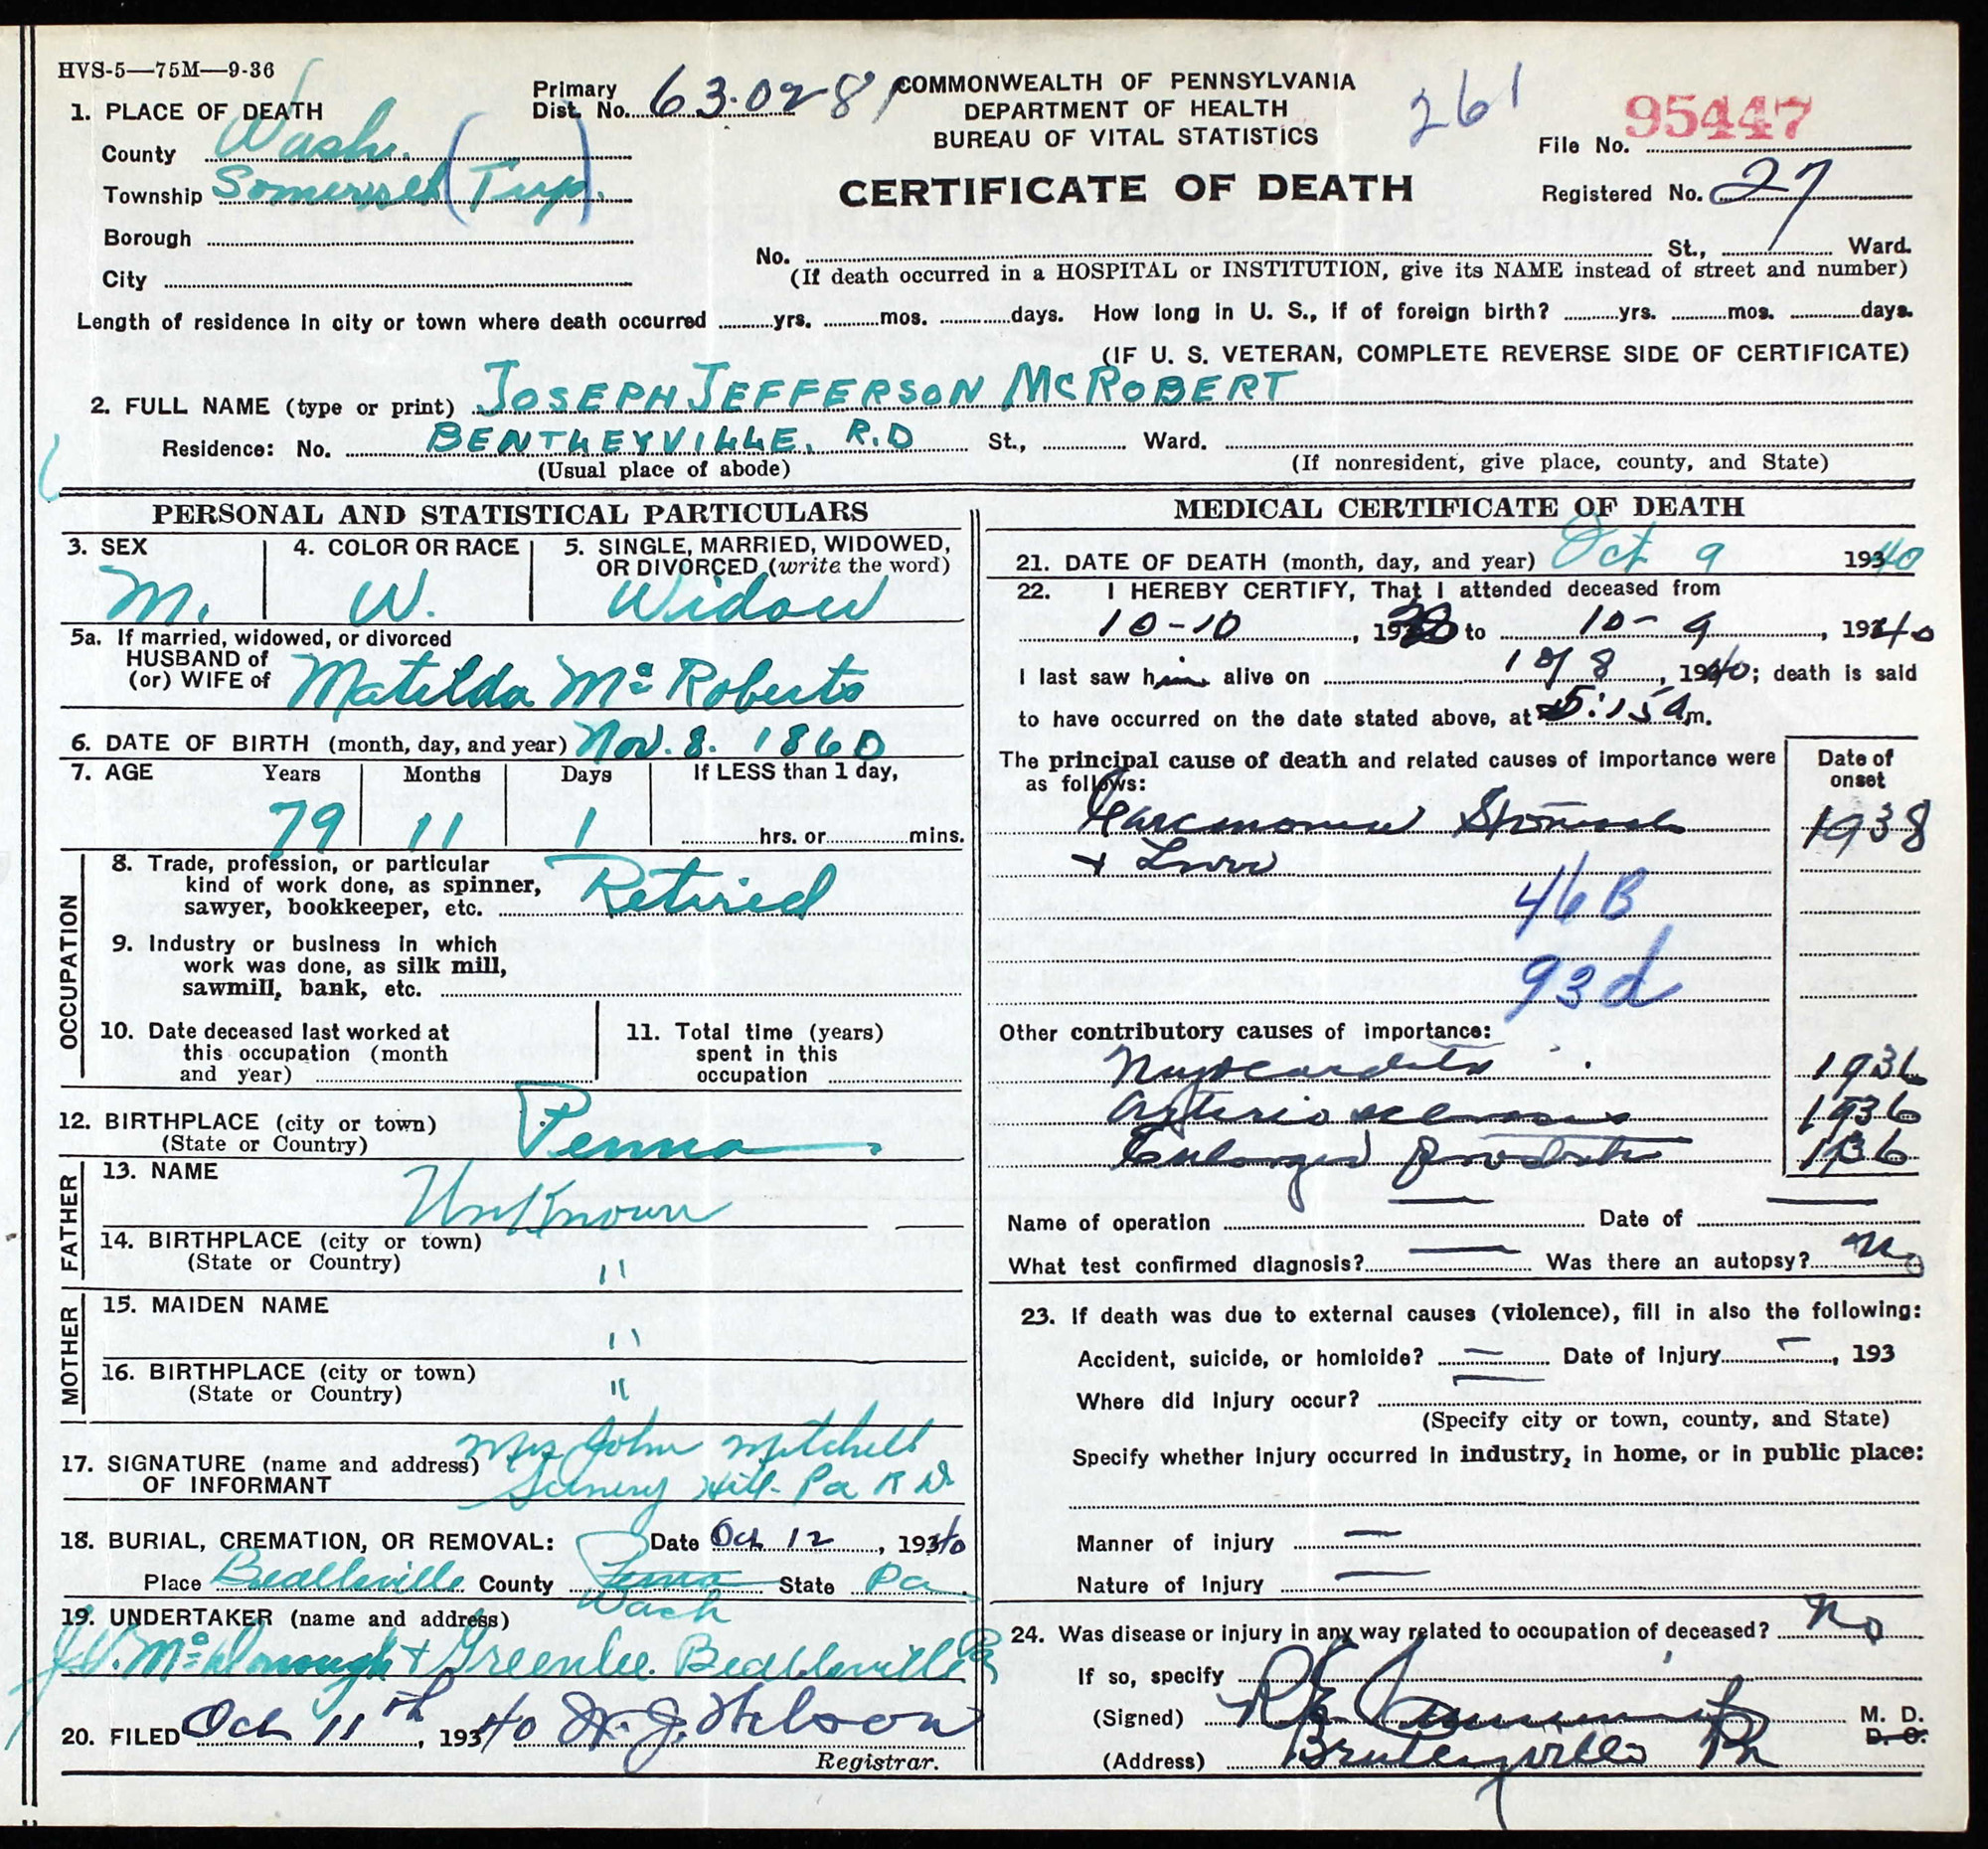 HVS-5—75M—9-36
Primary Dist. No. 63-02-81
COMMONWEALTH OF PENNSYLVANIA
DEPARTMENT OF HEALTH
BUREAU OF VITAL STATISTICS
261
File No. 95447
Registered No. 27
CERTIFICATE OF DEATH
1. PLACE OF DEATH
County Wash.
Township Somerset (Twp.)
Borough
City
No. St., Ward.
(If death occurred in a HOSPITAL or INSTITUTION, give its NAME instead of street and number)
Length of residence in city or town where death occurred yrs. mos. days. How long in U. S., if of foreign birth? yrs. mos. days.
(IF U. S. VETERAN, COMPLETE REVERSE SIDE OF CERTIFICATE)
2. FULL NAME (type or print) JOSEPH JEFFERSON McROBERT
Residence: No. BENTLEYVILLE. R.D St., Ward.
(Usual place of abode) (If nonresident, give place, county, and State)
PERSONAL AND STATISTICAL PARTICULARS
3. SEX M.
4. COLOR OR RACE W.
5. SINGLE, MARRIED, WIDOWED, OR DIVORCED (write the word) Widow
5a. If married, widowed, or divorced
HUSBAND of
(or) WIFE of Matilda Mc Roberts
6. DATE OF BIRTH (month, day, and year) Nov. 8. 1860
7. AGE Years Months Days If LESS than 1 day,
79 11 1 hrs. or mins.
OCCUPATION
8. Trade, profession, or particular
kind of work done, as spinner,
sawyer, bookkeeper, etc. Retired
9. Industry or business in which
work was done, as silk mill,
sawmill, bank, etc.
10. Date deceased last worked at
this occupation (month
and year)
11. Total time (years)
spent in this
occupation
12. BIRTHPLACE (city or town)
(State or Country) Penna
FATHER
13. NAME Unknown
14. BIRTHPLACE (city or town)
(State or Country) "
MOTHER
15. MAIDEN NAME "
16. BIRTHPLACE (city or town)
(State or Country) "
17. SIGNATURE (name and address) Mrs John Mitchell
OF INFORMANT Scenery Hill Pa R D
18. BURIAL, CREMATION, OR REMOVAL: Date Oct 12, 19340
Place Beallsville County Penna Wash State Pa.
19. UNDERTAKER (name and address)
McDonough + Greenlee. Beallsville Pa
20. FILED Oct 11th, 19340
Registrar.
MEDICAL CERTIFICATE OF DEATH
21. DATE OF DEATH (month, day, and year) Oct 9 19340
22. I HEREBY CERTIFY, That I attended deceased from
10-10, 1938 to 10-9, 1940
I last saw him alive on 10/8, 1940; death is said
to have occurred on the date stated above, at 5:15 a m.
The principal cause of death and related causes of importance were
as follows:
Date of onset
Carcinoma Stomach 1938
+ Liver
46 B
93d
Other contributory causes of importance:
Myocarditis 1936
Arteriosclerosis 1936
Enlarged prostate 1936
Name of operation — Date of —
What test confirmed diagnosis? — Was there an autopsy? No
23. If death was due to external causes (violence), fill in also the following:
Accident, suicide, or homicide? — Date of injury —, 193
Where did injury occur? —
(Specify city or town, county, and State)
Specify whether injury occurred in industry, in home, or in public place:
Manner of injury —
Nature of injury —
24. Was disease or injury in any way related to occupation of deceased? No
If so, specify
(Signed) M. D.
D. O.
(Address) Bentleyville Pa